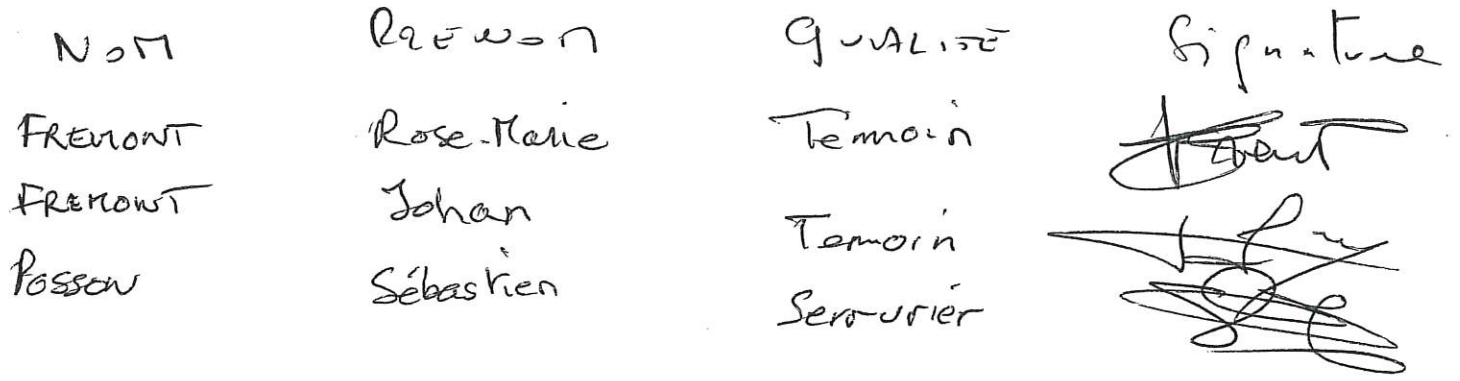 NOM PRENOM QUALITE Signature
FREMONT Rose-Marie Temoin
FREMONT Johan Temoin
POSSON Sébastien Serrurier